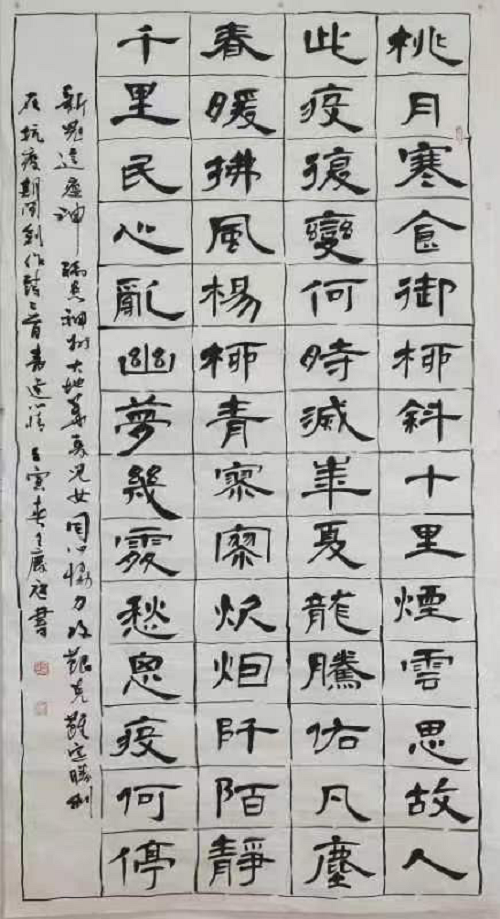 桃月寒食御柳斜十里煙雲思故人
此疫復變何時滅華夏龍騰佑凡塵
春暖拂風楊柳青寥寥炊烟阡陌靜
千里民心亂幽夢幾處愁思疫何停
新冠這瘟神 神州大地華夏兒女同心協力攻艱克難定勝利
在抗疫期间創作詩二首書達心情 壬寅春 書